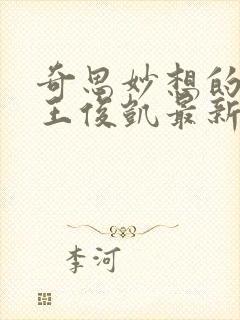 奇思妙想的
王俊凯最新
李河